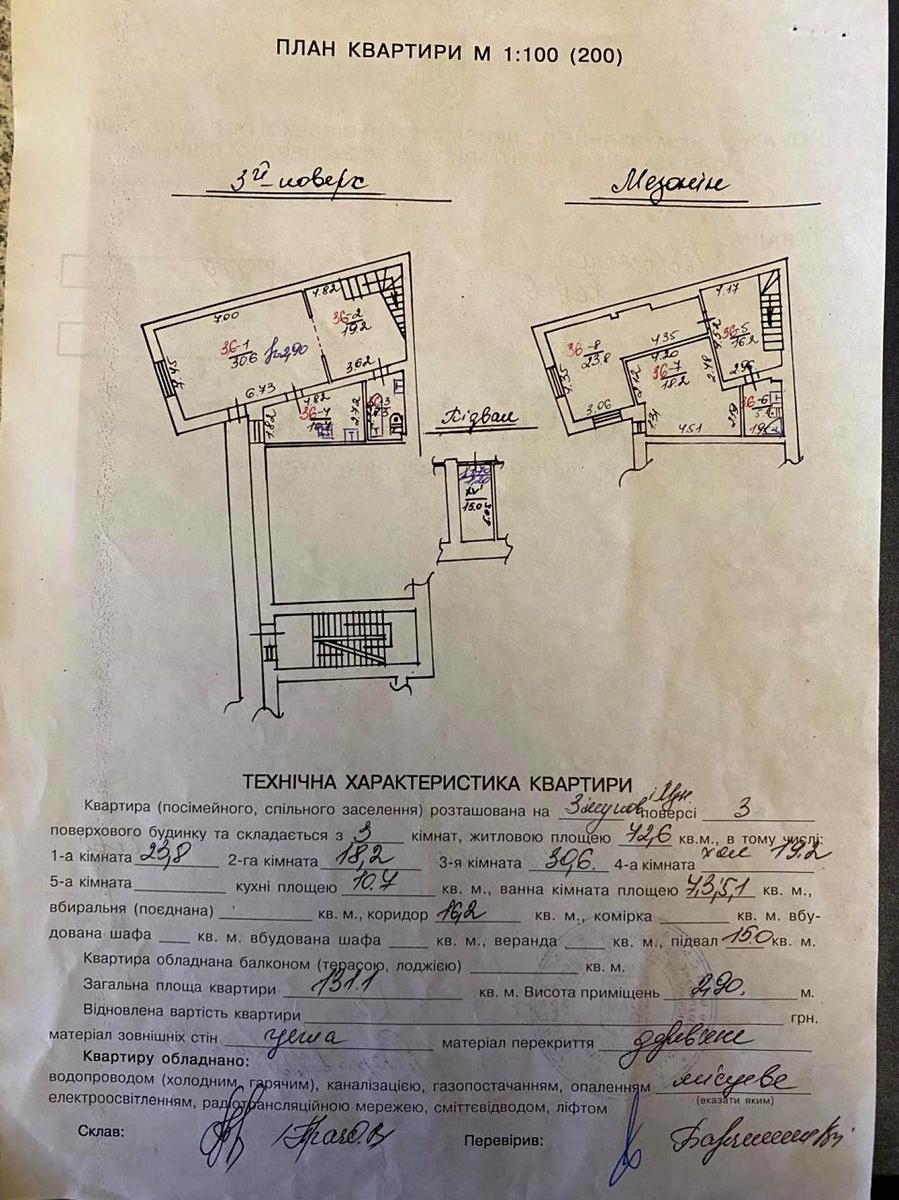 ПЛАН КВАРТИРИ М 1:100 (200)
3й поверх
Мезонін
4.82
7.00
36-2
19.2
36-1
30.6 h=2,90
4.45
3.62
6.73
4.82
36-4
1.82
2.72
Підвал
XV
15.0
4.17
36-5
16.2
4.35
36-8
23.8
4.20
36-7
18.2
2.48
2.96
3.06
1.31
36-6
5.1
4.51
1.96
ТЕХНІЧНА ХАРАКТЕРИСТИКА КВАРТИРИ
Квартира (посімейного, спільного заселення) розташована на поверсі 3
поверхового будинку та складається з 3 кімнат, житловою площею 72,6 кв.м., в тому числі:
1-а кімната 23,8 2-га кімната 18,2 3-я кімната 30,6. 4-а кімната хол 19.2
5-а кімната кухні площею 10.7 кв. м., ванна кімната площею 7,3; 5,1 кв. м.,
вбиральня (поєднана) кв. м., коридор 16,2 кв. м., комірка кв. м. вбу-
дована шафа кв. м. вбудована шафа кв. м., веранда кв. м., підвал 15.0 кв. м.
Квартира обладнана балконом (терасою, лоджією) кв. м.
Загальна площа квартири 131.1 кв. м. Висота приміщень 2,90. м.
Відновлена вартість квартири грн.
матеріал зовнішніх стін цегла матеріал перекриття дерев'яне
Квартиру обладнано:
водопроводом (холодним, гарячим), каналізацією, газопостачанням, опаленням місцеве
(вказати яким)
електроосвітленням, радіотрансляційною мережею, сміттєвідводом, ліфтом
Склав: Перевірив: